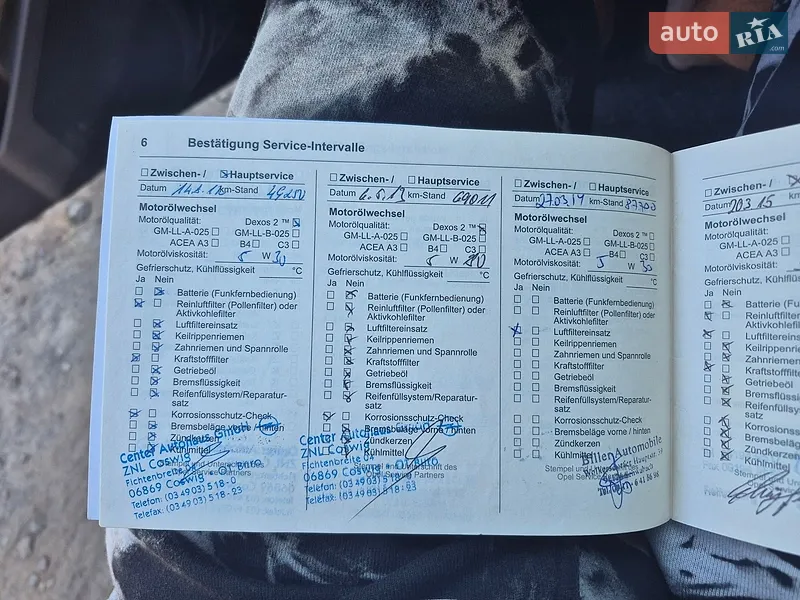 auto RIA .com
6 Bestätigung Service-Intervalle
Zwischen-/ Hauptservice
Datum km-Stand
Motorölwechsel
Motorölqualität: Dexos 2 ™
GM-LL-A-025 GM-LL-B-025
ACEA A3 B4 C3
Motorölviskosität: 5 W 30
Gefrierschutz, Kühlflüssigkeit °C
Ja Nein
Batterie (Funkfernbedienung)
Reinluftfilter (Pollenfilter) oder
Aktivkohlefilter
Luftfiltereinsatz
Keilrippenriemen
Zahnriemen und Spannrolle
Kraftstofffilter
Getriebeöl
Bremsflüssigkeit
Reifenfüllsystem/Reparatur-
satz
Korrosionsschutz-Check
Bremsbeläge vorne / hinten
Zündkerzen
Kühlmittel
Center Autohaus GmbH
ZNL Coswig
Fichtenbreite
06869 Coswig
Telefon: (03 49 03) 5 18-0
Telefax: (03 49 03) 5 18-23
Zwischen-/ Hauptservice
Datum 6.5.13 km-Stand 69011
Motorölwechsel
Motorölqualität: Dexos 2 ™
GM-LL-A-025 GM-LL-B-025
ACEA A3 B4 C3
Motorölviskosität: 5 W 30
Gefrierschutz, Kühlflüssigkeit °C
Ja Nein
Batterie (Funkfernbedienung)
Reinluftfilter (Pollenfilter) oder
Aktivkohlefilter
Luftfiltereinsatz
Keilrippenriemen
Zahnriemen und Spannrolle
Kraftstofffilter
Getriebeöl
Bremsflüssigkeit
Reifenfüllsystem/Reparatur-
satz
Korrosionsschutz-Check
Bremsbeläge vorne / hinten
Zündkerzen
Kühlmittel
Center Autohaus
ZNL Coswig
Fichtenbreite
06869 Coswig
Telefon: (03 49 03) 5 18-0
Telefax: (03 49 03) 5 18-23
Zwischen-/ Hauptservice
Datum 27.03.14 km-Stand 87700
Motorölwechsel
Motorölqualität: Dexos 2 ™
GM-LL-A-025 GM-LL-B-025
ACEA A3 B4 C3
Motorölviskosität: 5 W 30
Gefrierschutz, Kühlflüssigkeit °C
Ja Nein
Batterie (Funkfernbedienung)
Reinluftfilter (Pollenfilter) oder
Aktivkohlefilter
Luftfiltereinsatz
Keilrippenriemen
Zahnriemen und Spannrolle
Kraftstofffilter
Getriebeöl
Bremsflüssigkeit
Reifenfüllsystem/Reparatur-
satz
Korrosionsschutz-Check
Bremsbeläge vorne / hinten
Zündkerzen
Kühlmittel
Automobile
Zwischen-/
Datum
Motorölwechsel
Motorölqualität:
GM-LL-A-025
ACEA A3
Motorölviskosität:
Gefrierschutz, Kühlflüssigkeit
Ja Nein
Batterie (Funkfernb
Reinluftfilter (Pollen
Aktivkohlefilter
Luftfiltereinsatz
Keilrippenriemen
Zahnriemen und S
Kraftstofffilter
Getriebeöl
Bremsflüssigkeit
Reifenfüllsystem
satz
Korrosionsschutz
Bremsbeläge v
Zündkerzen
Kühlmittel